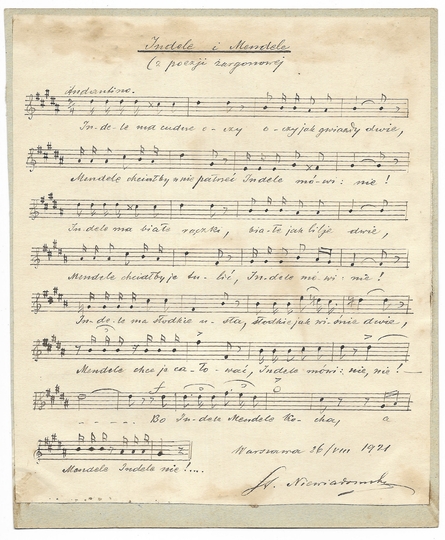 Indele i Mendele
(z poezji żargonowej
Andantino.
In-de-le ma cudne o-czy o-czy jak gwiazdy dwie,
Mendele chciałby w nie patrzeć Indele mó-wi: nie!
In-dele ma białe rączki, bia-łe jak lilje dwie,
Mendele chciałby je tu-lić, Indele mó-wi: nie!
In-de-le ma słodkie u-sta, słodkie jak wi-śnie dwie,
Mendele chce je ca-ło-wać, Indele mówi: nie, nie! —
Bo In-dele Mendele ko-cha, a
Mendele Indele nie!...
Warszawa 26/VIII 1921
St. Niewiadomski